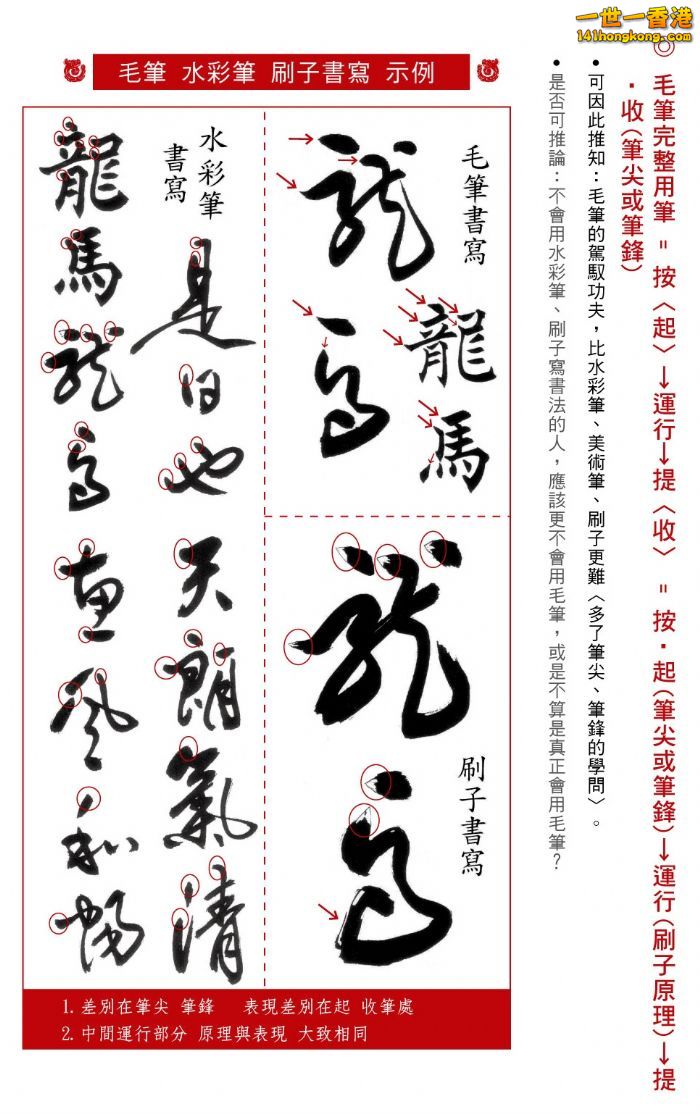 一世一香港
141hongkong.com
◎ 毛筆完整用筆 = 按〈起〉→運行→提〈收〉 = 按·起(筆尖或筆鋒)→運行(刷子原理)→提
·收(筆尖或筆鋒)
• 可因此推知：毛筆的駕馭功夫，比水彩筆、美術筆、刷子更難〈多了筆尖、筆鋒的學問〉。
• 是否可推論：不會用水彩筆、刷子寫書法的人，應該更不會用毛筆，或是不算是真正會用毛筆？
毛筆 水彩筆 刷子書寫 示例
毛筆書寫
龍馬
龍馬
刷子書寫
龍馬
水彩筆
書寫
是日也
天朗氣清
龍馬
龍馬
惠風和暢
1.差別在筆尖 筆鋒 表現差別在起 收筆處
2.中間運行部分 原理與表現 大致相同